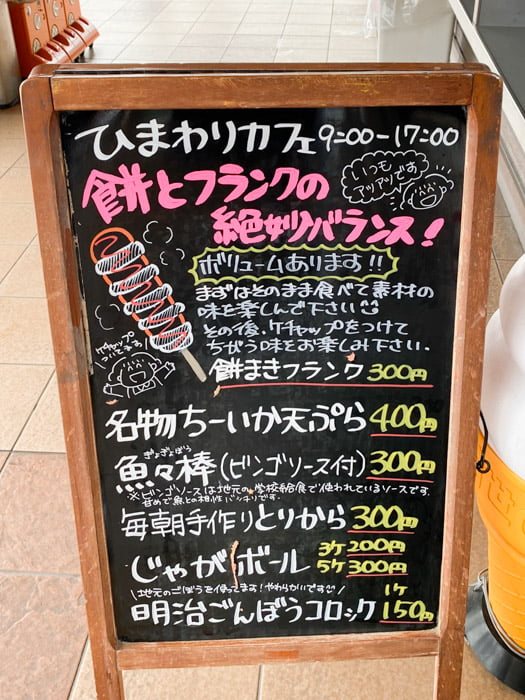 ひまわりカフェ 9:00-17:00
餅とフランクの
絶妙バランス!
いつも
アツアツです
ボリュームあります!!
まずはそのまま食べて素材の
味を楽しんで下さい
その後、ケチャップをつけて
ちがう味をお楽しみ下さい。
ケチャップ
ついてます
餅まきフランク 300円
名物ちーいか天ぷら 400円
ぎょぎょぼう
魚々棒(ビンゴソース付) 300円
※ビンゴソースは地元の学校給食で使われているソースです。
甘めで魚との相性バッチリです。
毎朝手作りとりから 300円
じゃがボール 3ケ 200円
5ケ 300円
\地元のごぼうを使ってます!やわらかいです/
明治ごんぼうコロッケ 1ケ 150円